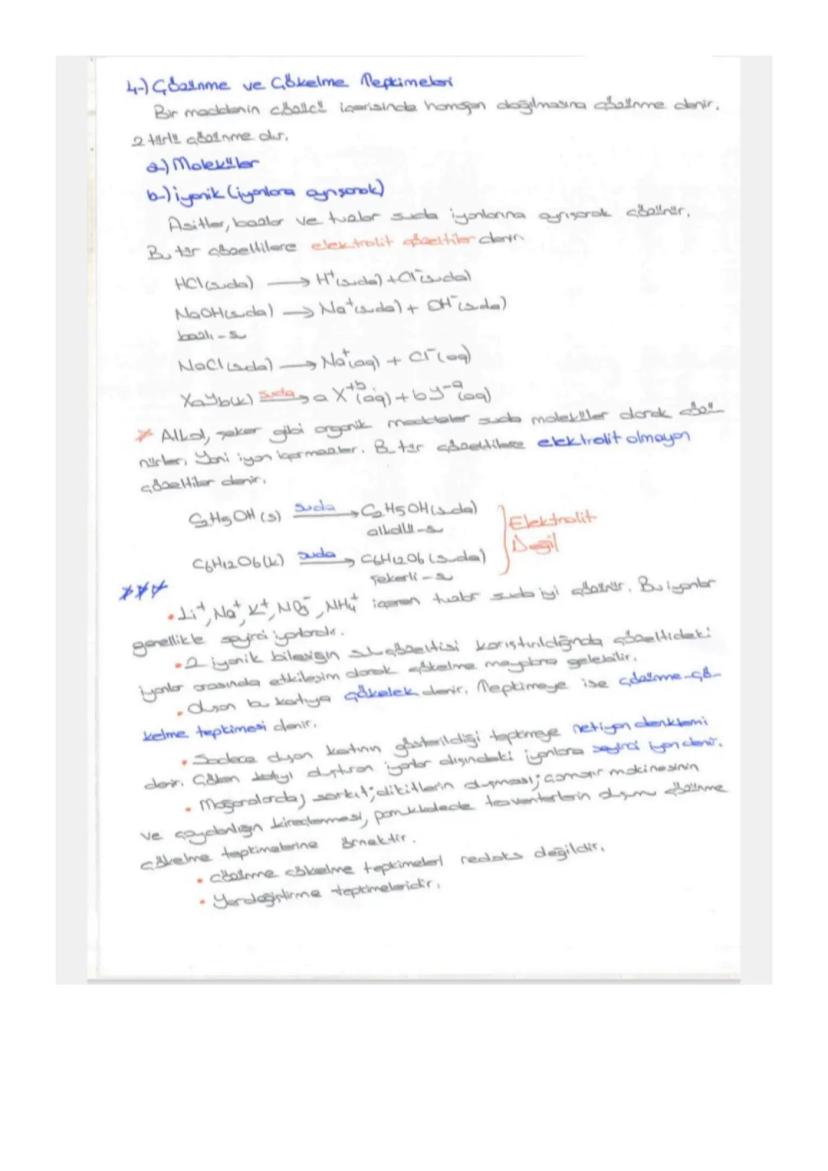 4-) Çözünme ve Çökelme Tepkimeleri
Bir maddenin çözücü içerisinde homojen dağılmasına çözünme denir.
2 türlü çözünme olur.
a-) Moleküler
b-) iyonik (iyonlara ayrışarak)
Asitler, bazlar ve tuzlar suda iyonlarına ayrışarak çözünür.
Bu tür çözeltilere elektrolit çözeltiler denir.
HCl(suda) → H⁺(suda) + Cl⁻(suda)
NaOH(suda) → Na⁺(suda) + OH⁻(suda)
bazlı-su
NaCl(suda) → Na⁺(aq) + Cl⁻(aq)
XaYb(k) suda→ a X⁺ᵇ(aq) + b Y⁻ᵃ(aq)
* Alkol, şeker gibi organik maddeler suda moleküller olarak çözü-
nürler. Yani iyon içermezler. Bu tür çözeltilere elektrolit olmayan
çözeltiler denir.
C₂H₅OH(s) suda→ C₂H₅OH(suda)
alkollü-su
C₆H₁₂O₆(k) suda→ C₆H₁₂O₆(suda)
şekerli-su
Elektrolit
Değil
***
• Li⁺, Na⁺, K⁺, NO₃⁻, NH₄⁺ içeren tuzlar suda iyi çözünür. Bu iyonlar
genellikle seyirci iyonlardır.
• 2 iyonik bileşiğin sulu çözeltisi karıştırıldığında çözeltideki
iyonlar arasında etkileşim olarak çökelme meydana gelebilir.
• Oluşan bu katıya çökelek denir. Tepkimeye ise çözünme-çö-
kelme tepkimesi denir.
• Sadece oluşan katının gösterildiği tepkimeye net iyon denklemi
denir. Çöken katıyı oluşturan iyonlar dışındaki iyonlara seyirci iyon denir.
• Mağaralarda; sarkıt, dikitlerin oluşması; çamaşır makinesinin
ve çaydanlığın kireçlenmesi, pamukkalede travertenlerin oluşumu çözünme
çökelme tepkimelerine örnektir.
• Çözünme çökelme tepkimeleri redoks değildir.
• Yerdeğiştirme tepkimeleridir.